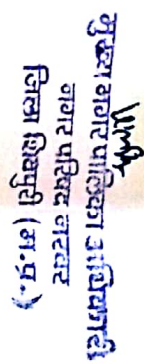 मुख्य नगर पालिका अधिकारी
नगर परिषद नरवर
जिला शिवपुरी (म.प्र.)